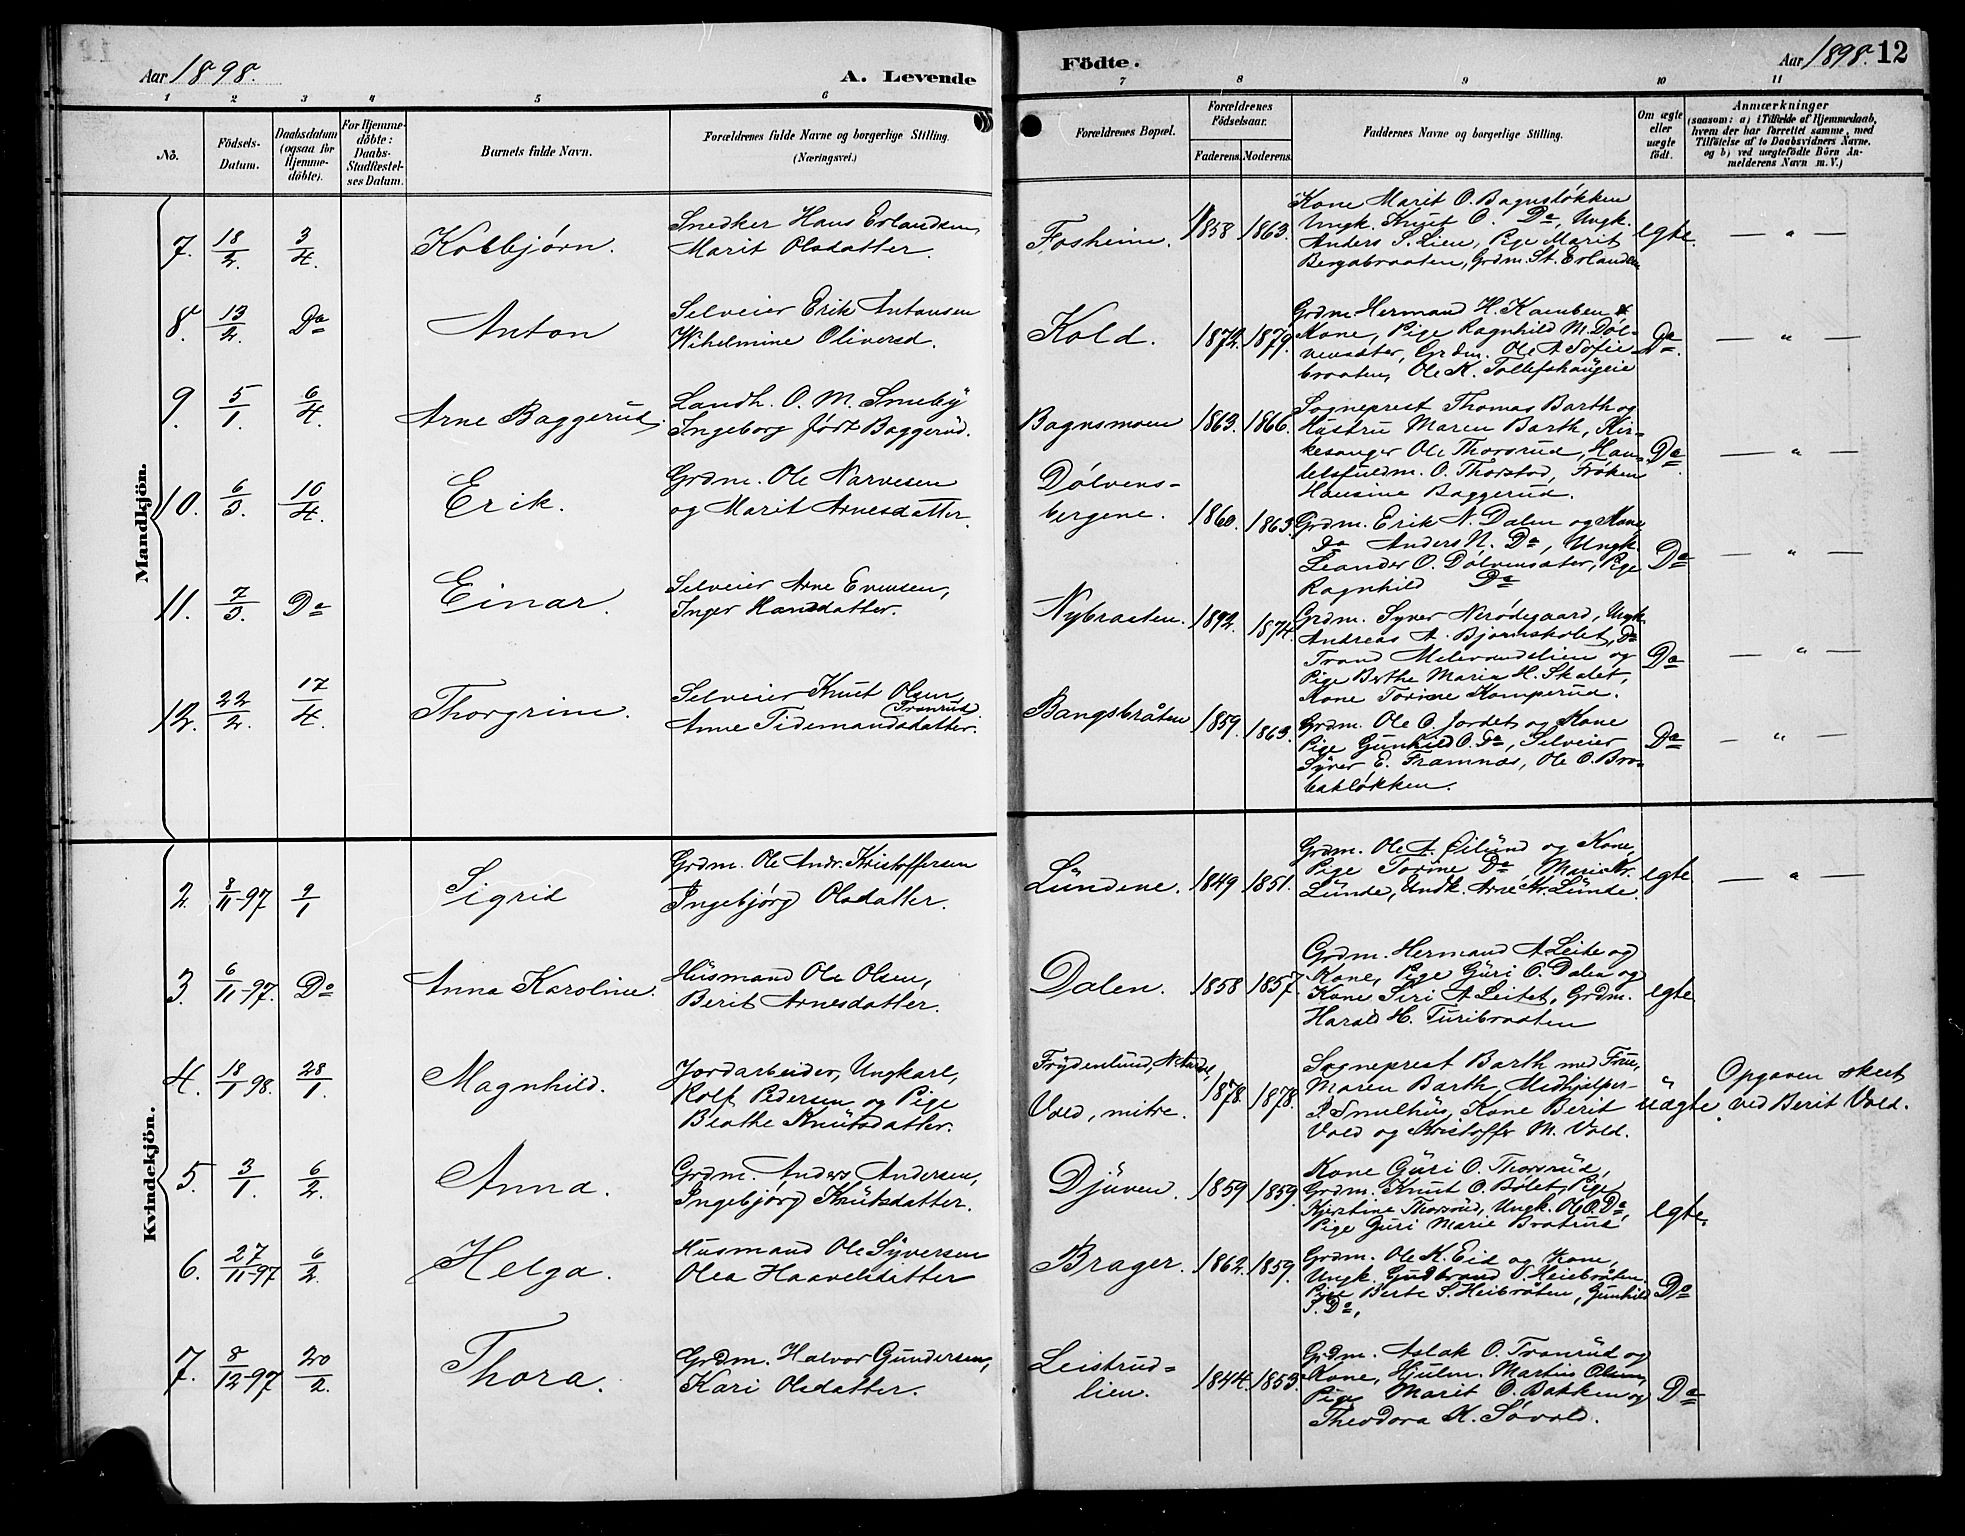 Aar 1898.
A. Levende
Födte.
Aar 1898. 12
1 2 3 4 5 6 7 8 9 10 11
No.
Födsels-Datum.
Daabsdatum (ogsaa for Hjemme-döbte).
For Hjemme-döbte: Daabs-Stadfæstel-ses Datum.
Barnets fulde Navn.
Forældrenes fulde Navne og borgerlige Stilling.
(Næringsvei.)
Forældrenes Bopæl.
Forældrenes Födselsaar.
Faderens. Moderens.
Faddernes Navne og borgerlige Stilling.
Om ægte eller uægte födt.
Anmærkninger
(saasom: a) i Tilfælde af Hjemmedaab,
hvem der har forrettet samme, med
Tilföielse af to Daabsvidners Navne,
og b) ved uægtefödte Börn An-
melderens Navn m. V.)
Mandkjön.
7. 18/2. 3/4. Kolbjørn.
Snedker Hans Erlandsen,
Marit Olsdatter.
Fosheim. 1858 1863.
Kone Marit O. Bagnsløkken
Ungk. Knut O. Do, Ungk.
Anders S. Lien, Pige Marit
Bergabraaten, Grdm. St. Erlandsen
egte. — " —
8. 13/2. Do Anton
Selveier Erik Antonsen
Wilhelmine Oliversd.
Kold. 1872. 1879.
Grdm. Hermand H. Kamben &
Kone, Pige Ragnhild M. Døl-
vensæter, Grdm. Ole A Sofie
braaten, Ole K. Tollefshaugeie
Do. — " —
9. 5/1. 6/4. Arne Baggerud.
Landh. O. M. Smeby
Ingeborg født Baggerud.
Bagnsmoen 1863. 1866.
Sogneprest Thomas Barth og
Hustru Maren Barth, Kir-
kesanger Ole Thorsrud, Han-
delsfuldm. O. Thorstad, Frøken
Hansine Baggerud.
Do. — " —
10. 6/3. 10/4. Erik.
Grdm. Ole Narvesen
og Marit Arnesdatter.
Dølvens-
bergene. 1860. 1863.
Grdm. Erik N. Dalen og Kone
Do Anders N. Do, Ungk.
Leander O. Dølvensæter, Pige
Ragnhild Do
Do — " —
11. 7/3. Do Einar.
Selveier Arne Evensen,
Inger Hansdatter.
Nybraaten. 1892. 1874.
Grdm. Syver Nerødegaard, Ungk.
Andreas A. Bjørnskolet, Do
Trond Melevandslien og
Pige Berthe Maria H. Skalet,
Kone Torine Kamperud.
Do — " —
12. 22/2. 17/4. Thorgrim.
Selveier Knut Olsen
Tranrud
Anne Tidemandsdatter.
Bangsbråten 1859. 1863.
Grdm. Ole O. Jordet og Kone
Pige Gunhild O. Do, Selveier
Syver E. Framnæs, Ole O. Bro-
batløkken.
Do — " —
Kvindekjön.
2. 8/11-97 2/1 Sigrid
Grdm. Ole Andr. Kristoffersen
Ingebjørg Olsdatter.
Lundene. 1849 1851.
Grdm. Ole A. Øilund og Kone,
Pige Torine Do, Marie Kr.
Lunde, Undk. Arne Kr. Lunde.
egte — " —
3. 6/11-97. Do Anna Karoline.
Husmand Ole Olsen,
Berit Arnesdatter.
Dalen. 1858 1857.
Grdm. Hermand A Leite og
Kone, Pige Guri O. Dalen og
Kone Siri A Leitet, Grdm.
Harald H. Turibraaten
egte
4. 18/1 98. 28/1. Magnhild.
Jordarbeider, Ungkarl,
Rolf Pedersen og Pige
Beathe Knutsdatter.
Frydenlund,
Vold, mitre. 1878. 1878.
Sogneprest Barth med Frue,
Maren Barth, Medhjælper-
P. Smelhus, Kone Berit
Vold og Kristoffer M. Vold.
" uægte
Opgaven skeet
ved Berit Vold.
5. 3/1. 6/2 Anna.
Grdm. Anders Andersen,
Ingebjørg Knutsdatter.
Djuven. 1859 1859.
Kone Guri O. Thorsrud,
Grdm. Knut O. Bølet, Pige
Kjerstine Thorsrud, Ungk. Ole O. Do,
Pige Guri Marie Bratrud
egte.
6. 27/11-97 6/2. Helga.
Husmand Ole Syversen
Olea Haavelsdatter
Brager. 1862. 1859.
Grdm. Ole K. Eid og Kone,
Ungk. Gudbrand S. Heiebråten.
Pige Berte S. Heibråten, Gunhild
S. Do,
Do
7. 8/12-97 20/2. Thora.
Grdm. Halvor Gundersen,
Kari Olsdatter.
Leistrud-
lien. 1844. 1853.
Grdm. Aslak O. Tranrud og
Kone, Hjulm. Martius Olsen,
Pige Marit O. Bakken og
Theodora K. Søvold.
Do